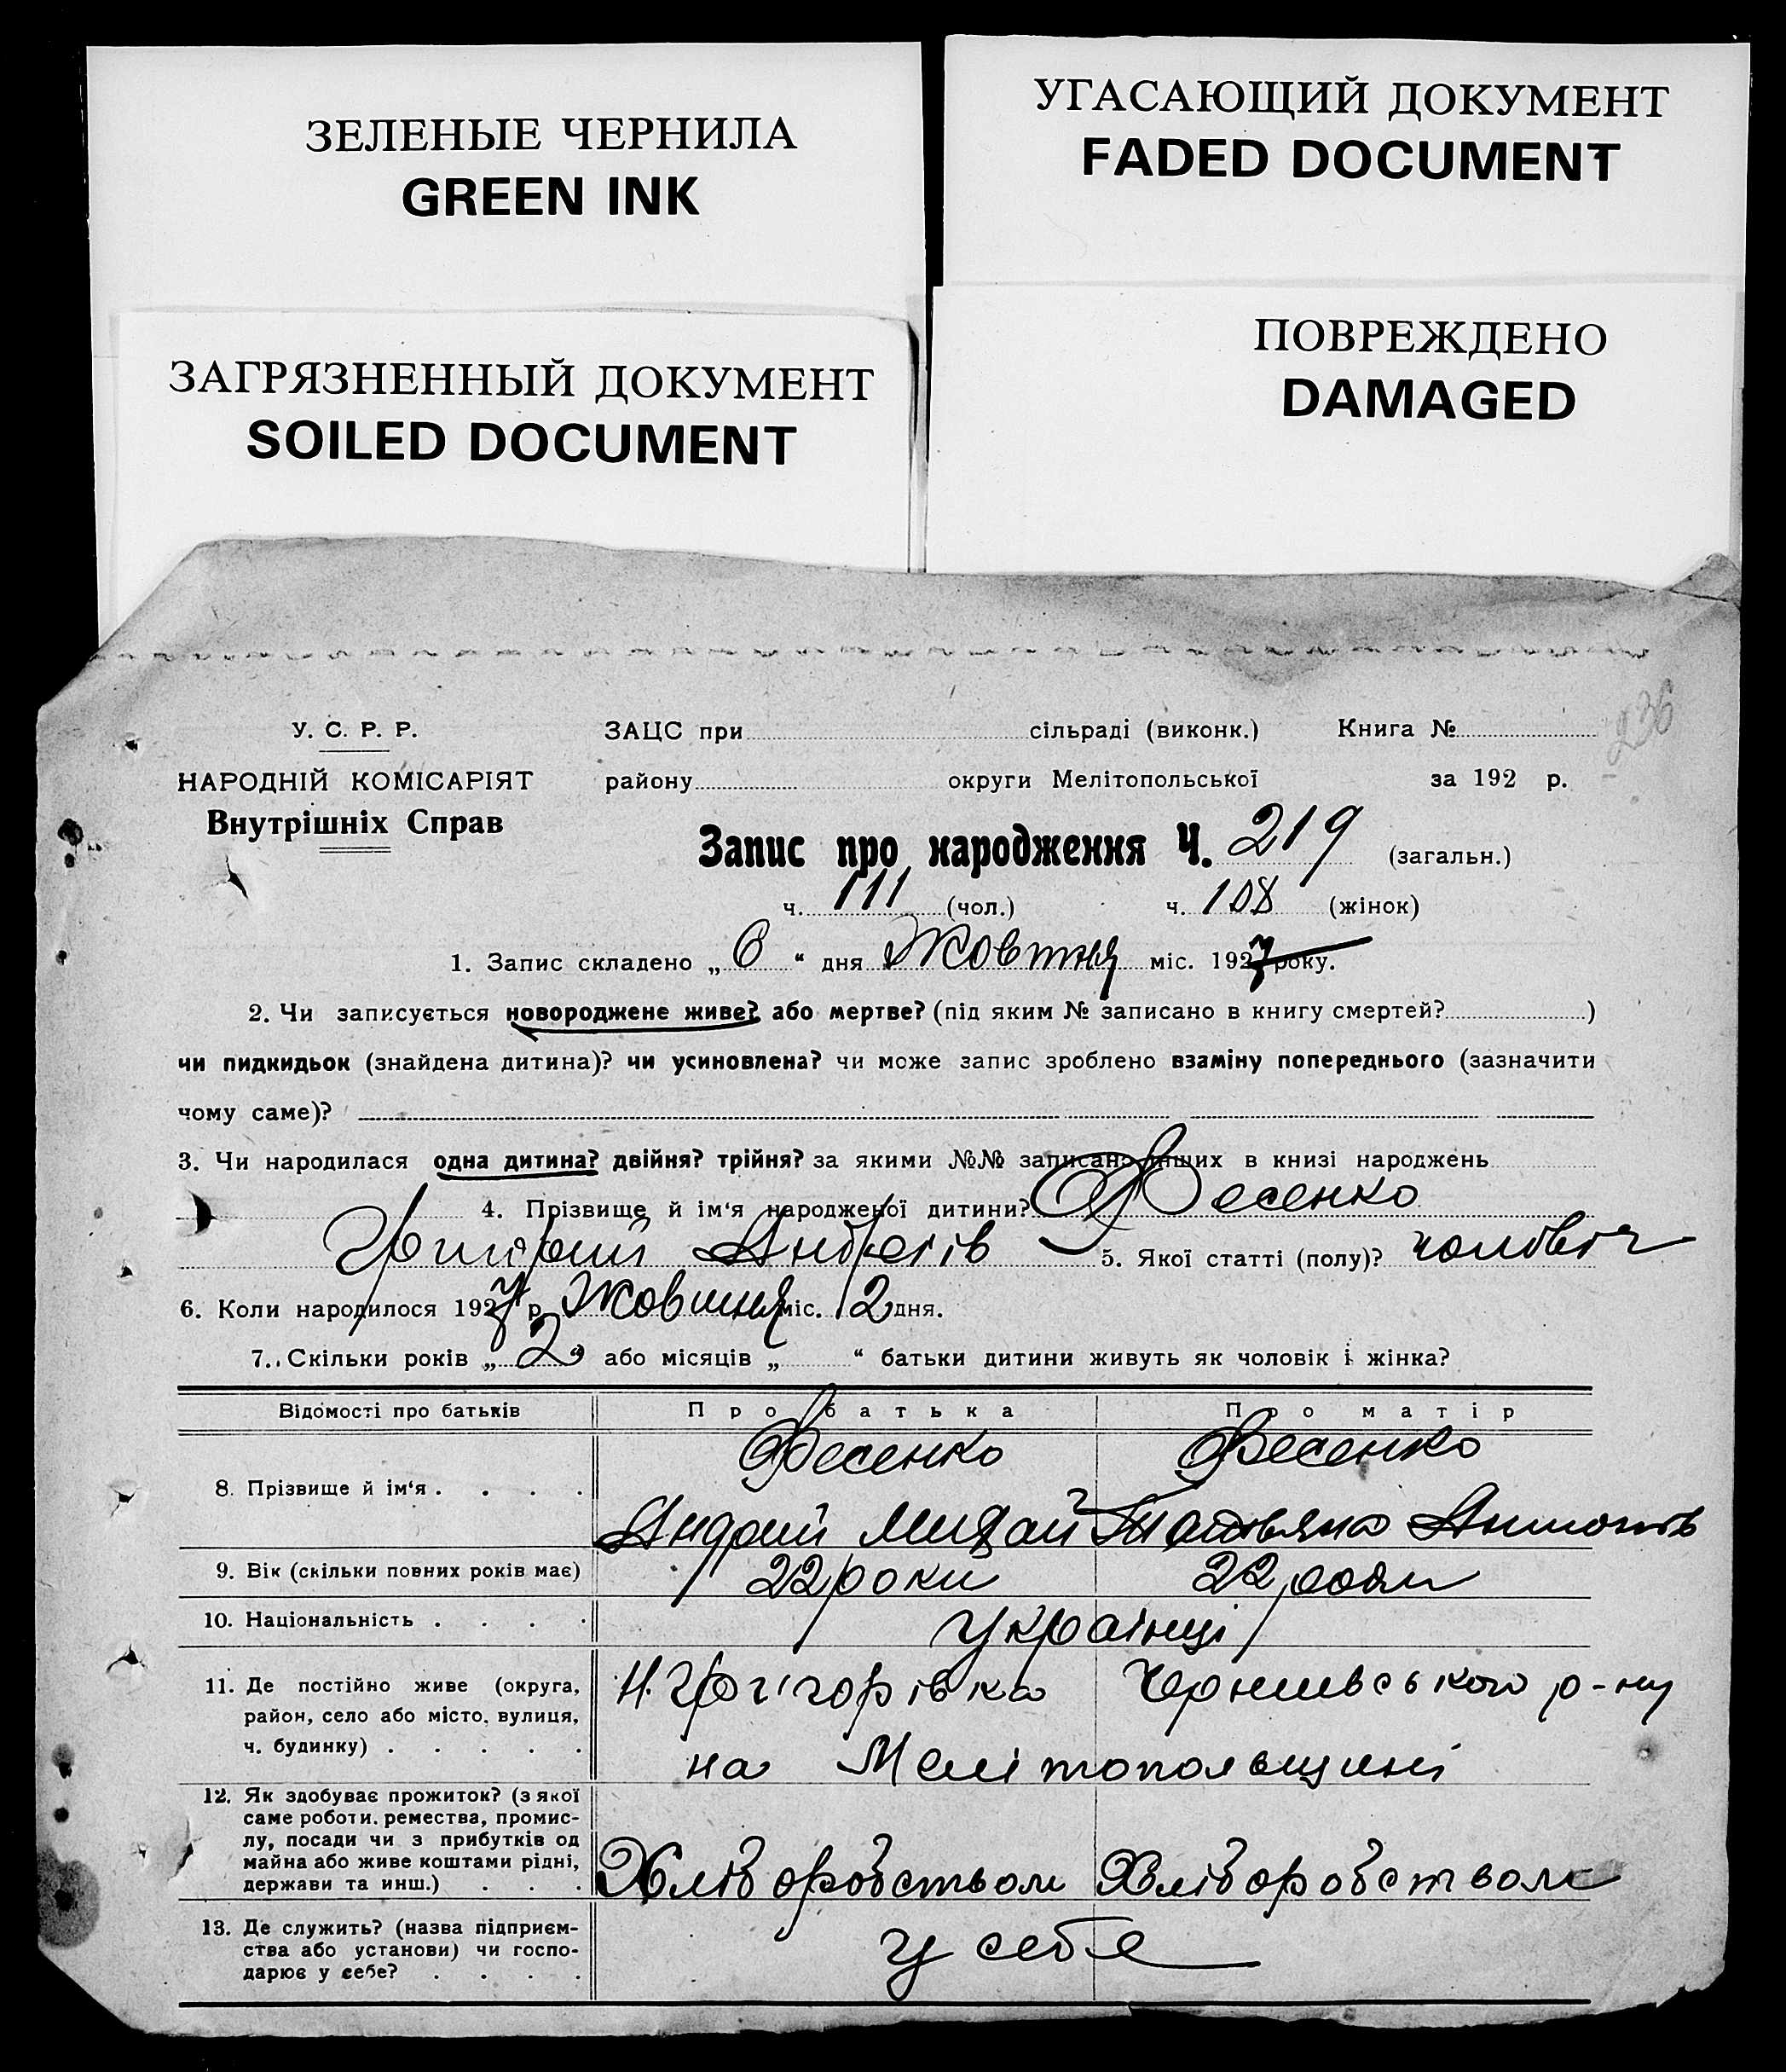 ЗЕЛЕНЫЕ ЧЕРНИЛА
GREEN INK
УГАСАЮЩИЙ ДОКУМЕНТ
FADED DOCUMENT
ЗАГРЯЗНЕННЫЙ ДОКУМЕНТ
SOILED DOCUMENT
ПОВРЕЖДЕНО
DAMAGED
236
У. С. Р. Р. ЗАЦС при сільраді (виконк.) Книга №
НАРОДНІЙ КОМІСАРІЯТ району округи Мелітопольської за 192 р.
Внутрішніх Справ
Запис про народження Ч. 219 (загальн.)
ч. 111 (чол.) ч. 108 (жінок)
1. Запис складено „ 6 “ дня Жовтня міс. 1927 року.
2. Чи записується новороджене живе? або мертве? (під яким № записано в книгу смертей? )
чи пидкидьок (знайдена дитина)? чи усиновлена? чи може запис зроблено взаміну попереднього (зазначити
чому саме)?
3. Чи народилася одна дитина? двійня? трійня? за якими №№ записано інших в книзі народжень
4. Прізвище й ім‘я народженої дитини? Фесенко
Григорій Андреів 5. Якої статті (полу)? чоловіч
6. Коли народилося 1927 р. Жовтня міс. 2 дня.
7. Скільки років „ 2 “ або місяців „ “ батьки дитини живуть як чоловік і жінка?
Відомості про батьків Про батька Про матір
Фесенко Фесенко
8. Прізвище й ім‘я . . . .
Андрій Михай Татьяна Антонів
9. Вік (скільки повних років має) 22 роки 22 роки
10. Національність . . . . українці
11. Де постійно живе (округа, Н. Григорівка Чернивського р-ну
район, село або місто, вулиця,
ч. будинку) . . . . . на Мелітопольщині
12. Як здобуває прожиток? (з якої
саме роботи. ремества, промис-
лу, посади чи з прибутків од
майна або живе коштами рідні, Хліборобством Хліборобством
держави та инш.) . . .
13. Де служить? (назва підприєм-
ства або установи) чи госпо- у себе
дарює у себе? . . . .